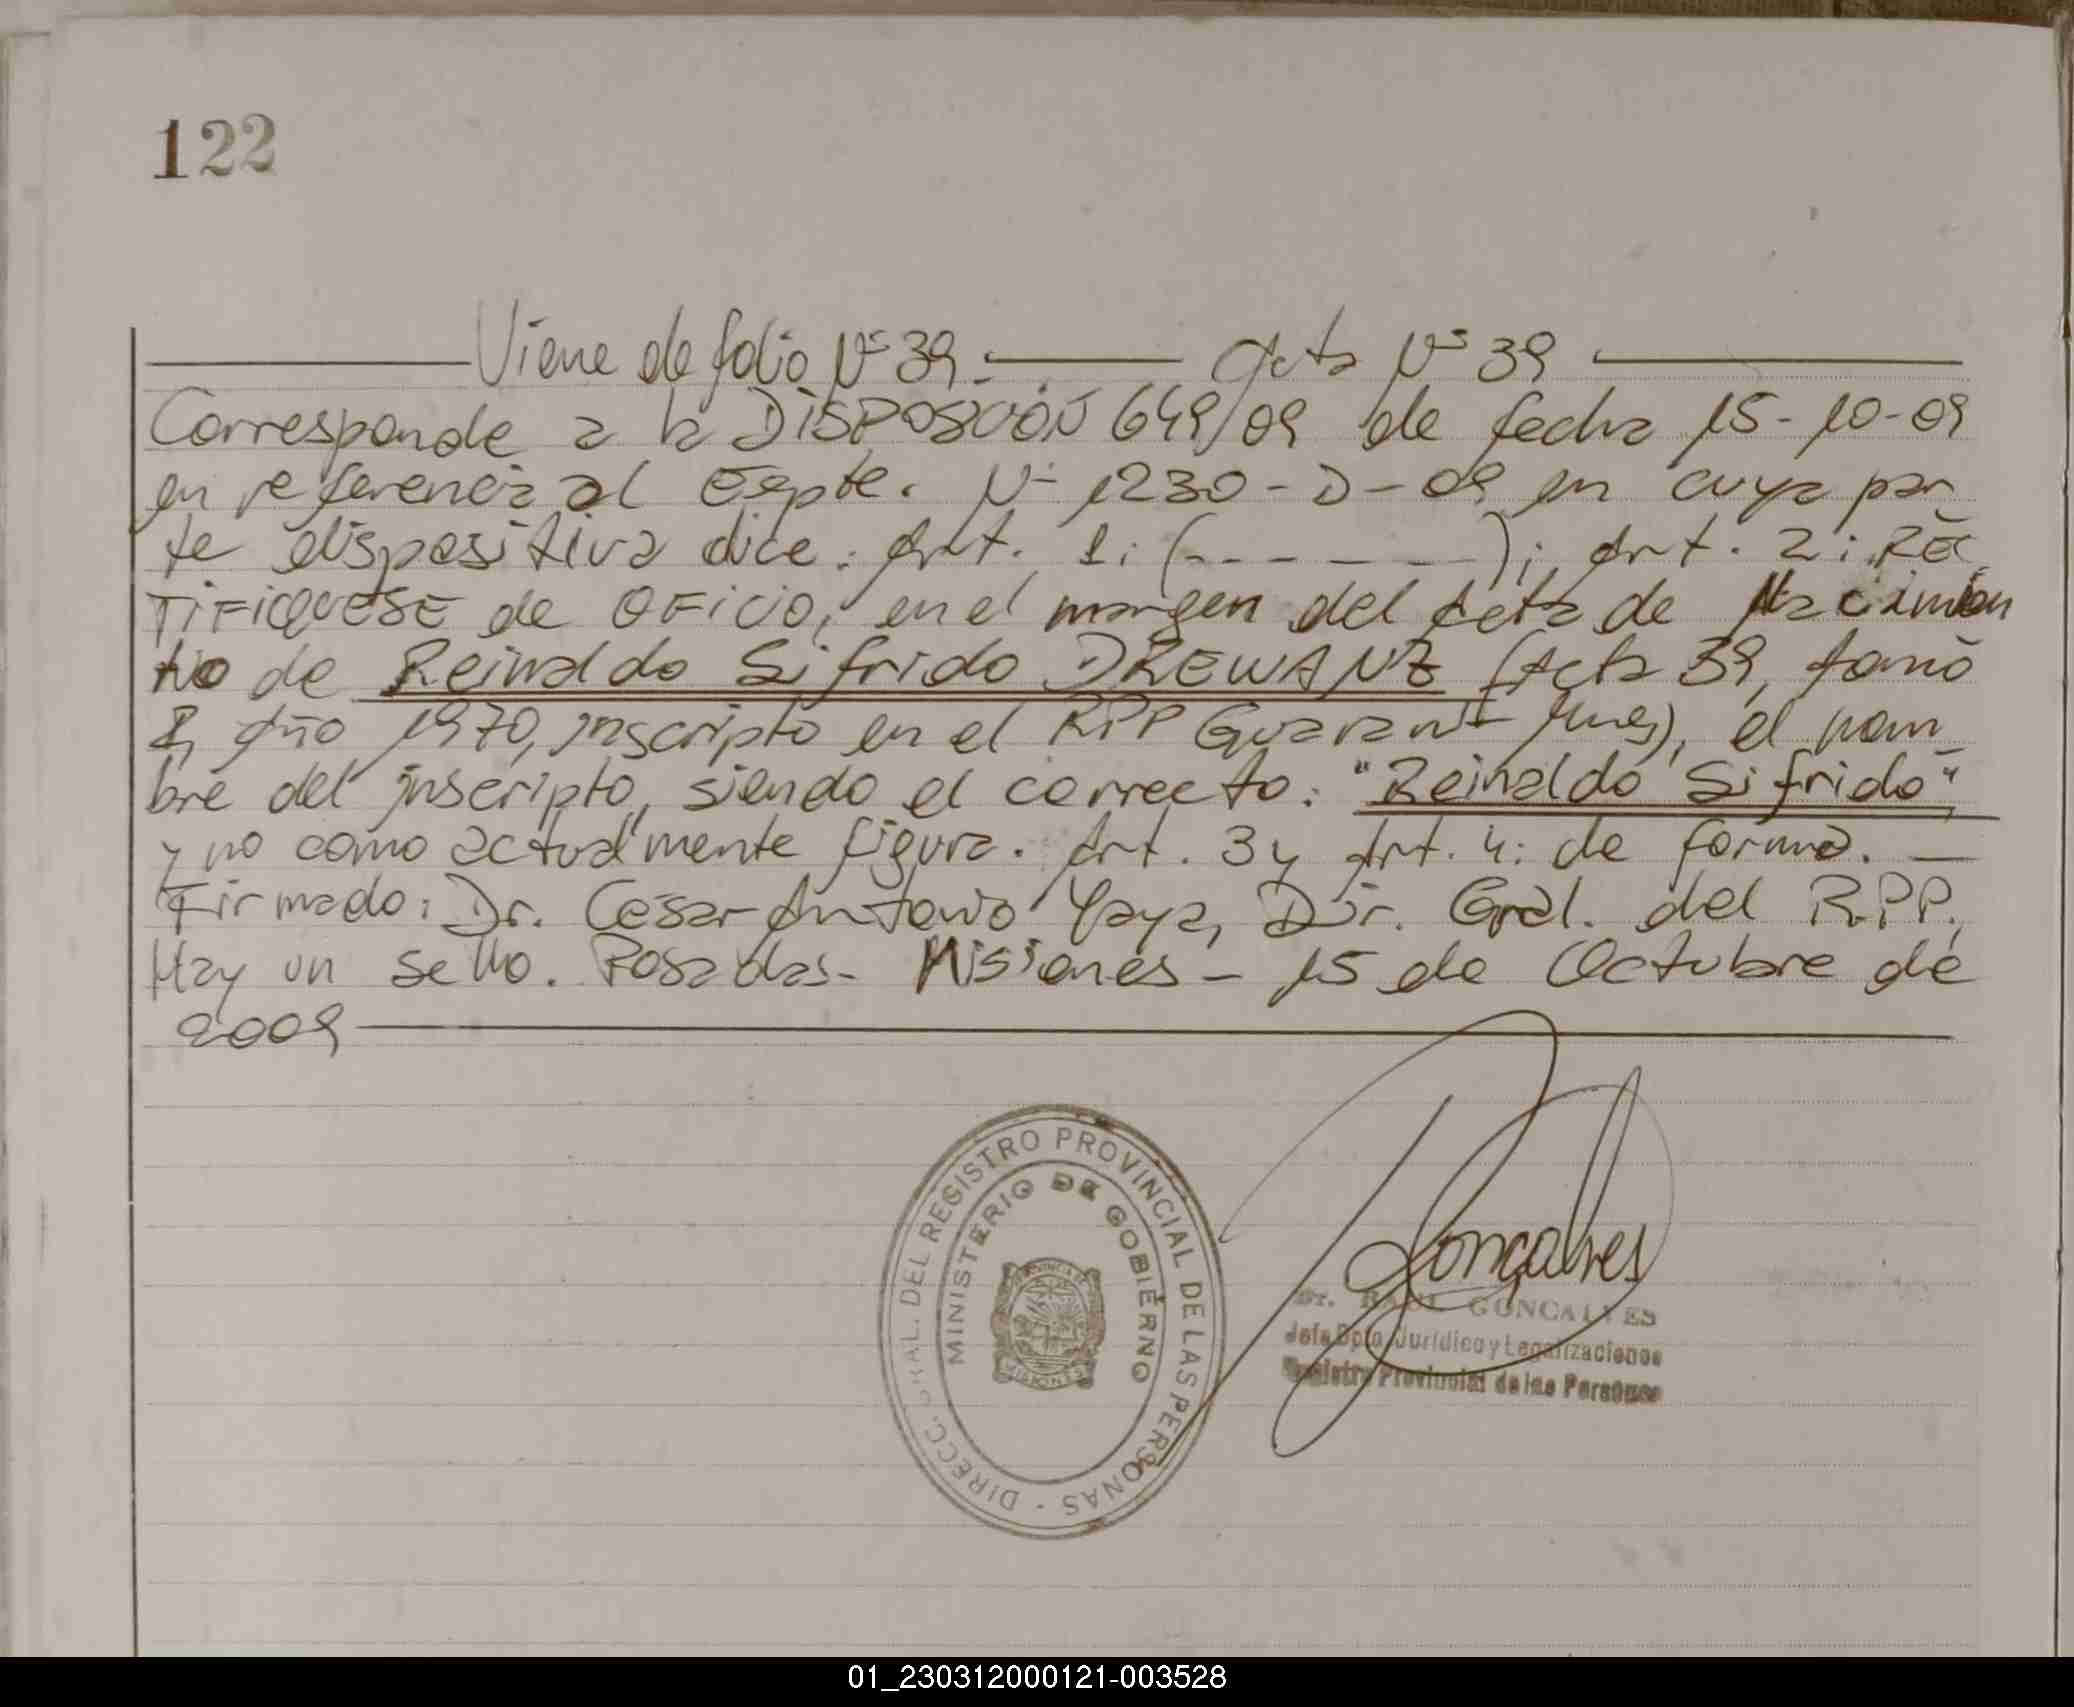 122
Viene de folio Nº 39. Acta Nº 39
Corresponde a la DISPOSICIÓN 649/09 de fecha 15-10-09
en referencia al Expte. Nº 1230-D-09 en cuya par
te dispositiva dice: Art. 1: (------); Art. 2: REC
TIFIQUESE de OFICIO, en el margen del Acta de Nacimien
to de Reinaldo Sifrido DREWANZ (Acta 39, tomo
Año 1970, inscripto en el RPP Guaraní Mnes), el nom
bre del inscripto, siendo el correcto: "Reinaldo Sifrido"
y no como actualmente figura. Art. 3 y Art. 4: de forma.
Firmado: Dr. Cesar Antonio Yaya, Dir. Gral. del R.P.P.
Hay un sello. Posadas- Misiones - 15 de Octubre de
2009
DIRECC. GRAL. DEL REGISTRO PROVINCIAL DE LAS PERSONAS -
MINISTERIO DE GOBIERNO
PROVINCIA DE
MISIONES
Gonçalves
Dr. RAUL GONCALVES
Jefe Dpto. Jurídico y Legalizaciones
Registro Provincial de las Personas
01_230312000121-003528